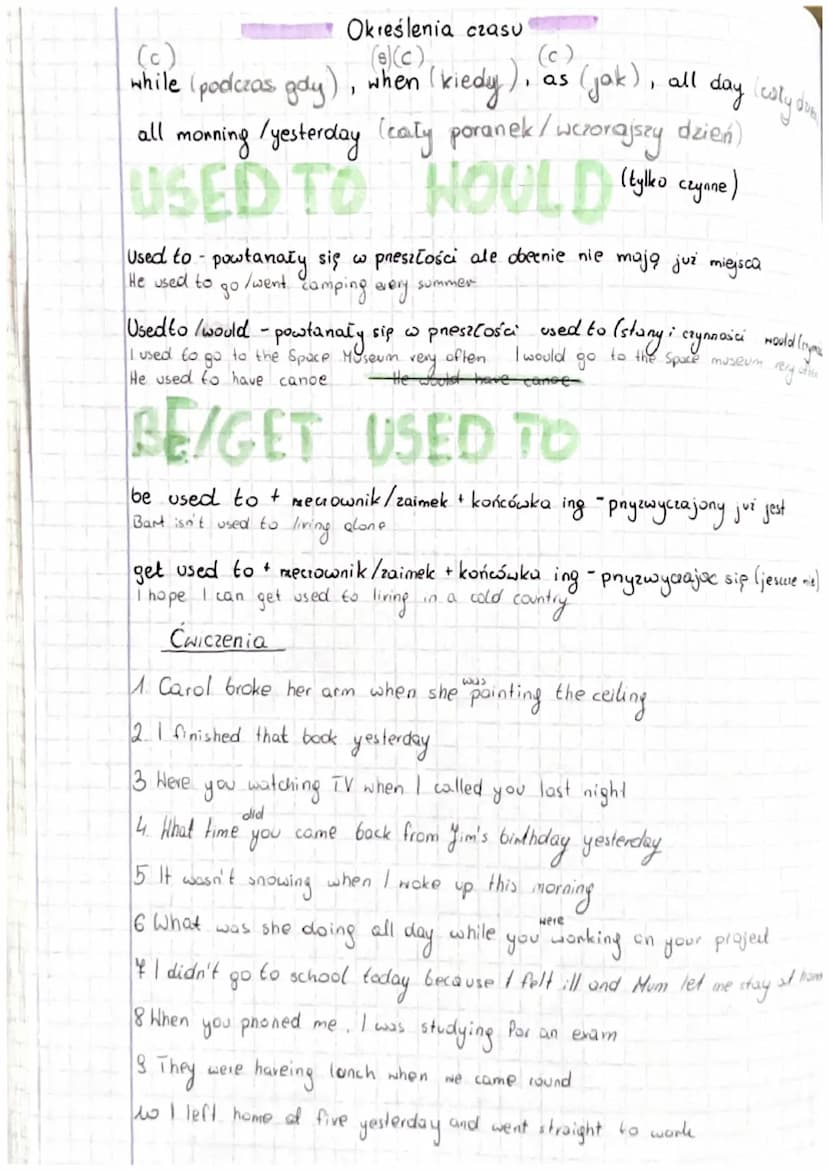 Określenia czasu
(c) (s)(c) (c)
while (podczas gdy), when (kiedy), as (jak), all day (cały dzień)
all morning /yesterday (cały poranek/wczorajszy dzień)
USED TO WOULD (tylko czynne)
Used to - powtarzały się w przeszłości ale obecnie nie mają już miejsca
He used to go/went camping every summer
Used to /would - powtarzały się w przeszłości used to (stany i czynności would
I used to go to the Space Museum very often I would go to the Space museum very often
He used to have canoe He would have canoe
BE/GET USED TO
be used to + rzeczownik/zaimek + końcówka ing - przyzwyczajony już jest
Bart isn't used to living alone
get used to + rzeczownik/zaimek + końcówka ing - przyzwyczajac się (jeszcze nie)
I hope I can get used to living in a cold country
Ćwiczenia
1. Carol broke her arm when she was painting the ceiling
2. I finished that book yesterday
3 Were you watching TV when I called you last night
4. What time did you come back from Jim's birthday yesterday
5 It wasn't snowing when I woke up this morning
6 What was she doing all day while you were working on your project
7 I didn't go to school today because I felt ill and Mum let me stay at home
8 When you phoned me, I was studying for an exam
9 They were haveing lunch when we came round
10 I left home at five yesterday and went straight to work